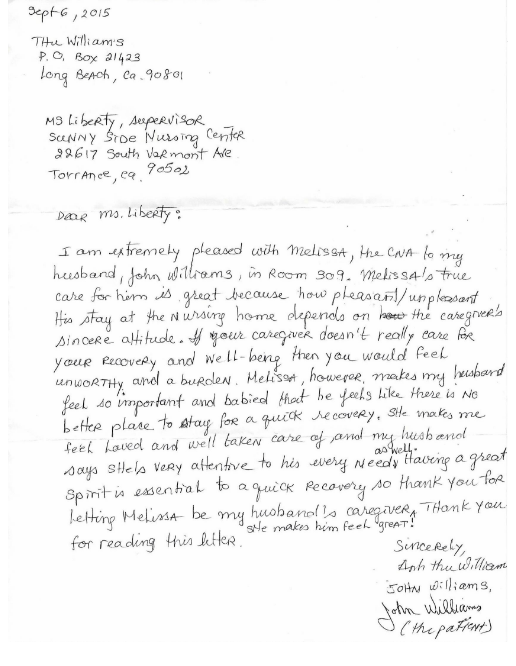 Sept 6, 2015
THu Williams
P.O. Box 21423
Long Beach, Ca. 90801
MS Liberty, supervisor
Sunny Side Nursing Center
22617 South Vermont Ave
Torrance, ca. 90502
Dear Ms. Liberty:
I am extremely pleased with Melissa, the CNA to my
husband, John Williams, in Room 309. Melissa's true
care for him is great because how pleasant/unpleasant
His stay at the Nursing home depends on the caregiver's
sincere attitude. If your caregiver doesn't really care for
your Recovery and well-being then you would feel
unworthy and a burden. Melissa, however, makes my husband
feel so important and babied that he feels like there is no
better plase to stay for a quick recovery. She makes me
feel Loved and well taken care of and my husband
as well.
says she's very attentive to his every Needs. Having a great
spirit is essential to a quick Recovery so thank you for
letting Melissa be my husband's caregiver. Thank you
she makes him feel great!
for reading this letter.
Sincerely,
Anh thu William
John Williams,
John Williams
(the patient)